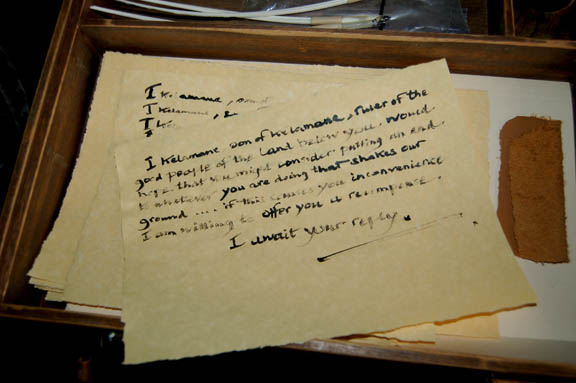 I Kelamane, son of
I Kelamane,
I
I Kelamane son of Kelamane, ruler of the
good people of the land below you, would
hope that you might consider putting an end
to whatever you are doing that shakes our
ground .... if this causes you inconvenience
I am willing to offer you a recompense.
I await your reply.